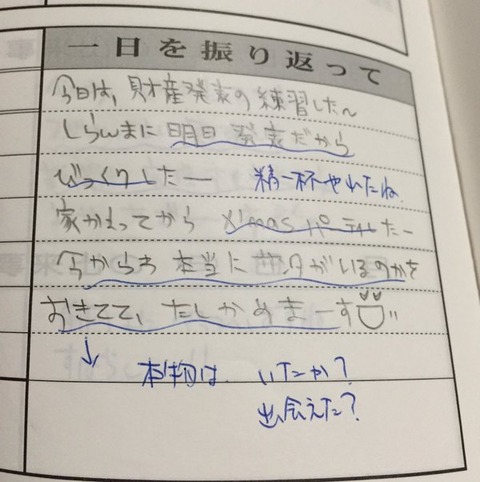 一日を振り返って
今日は、財産発表の練習した〜
しらんまに明日発表だから
びっくりしたー 精一杯やれたね
家かえってから X'masパーティしたー
今からお本当に サンタがいるのかを
おきてて、たしかめまーす
↓ 本物は いたか?
出会えた?